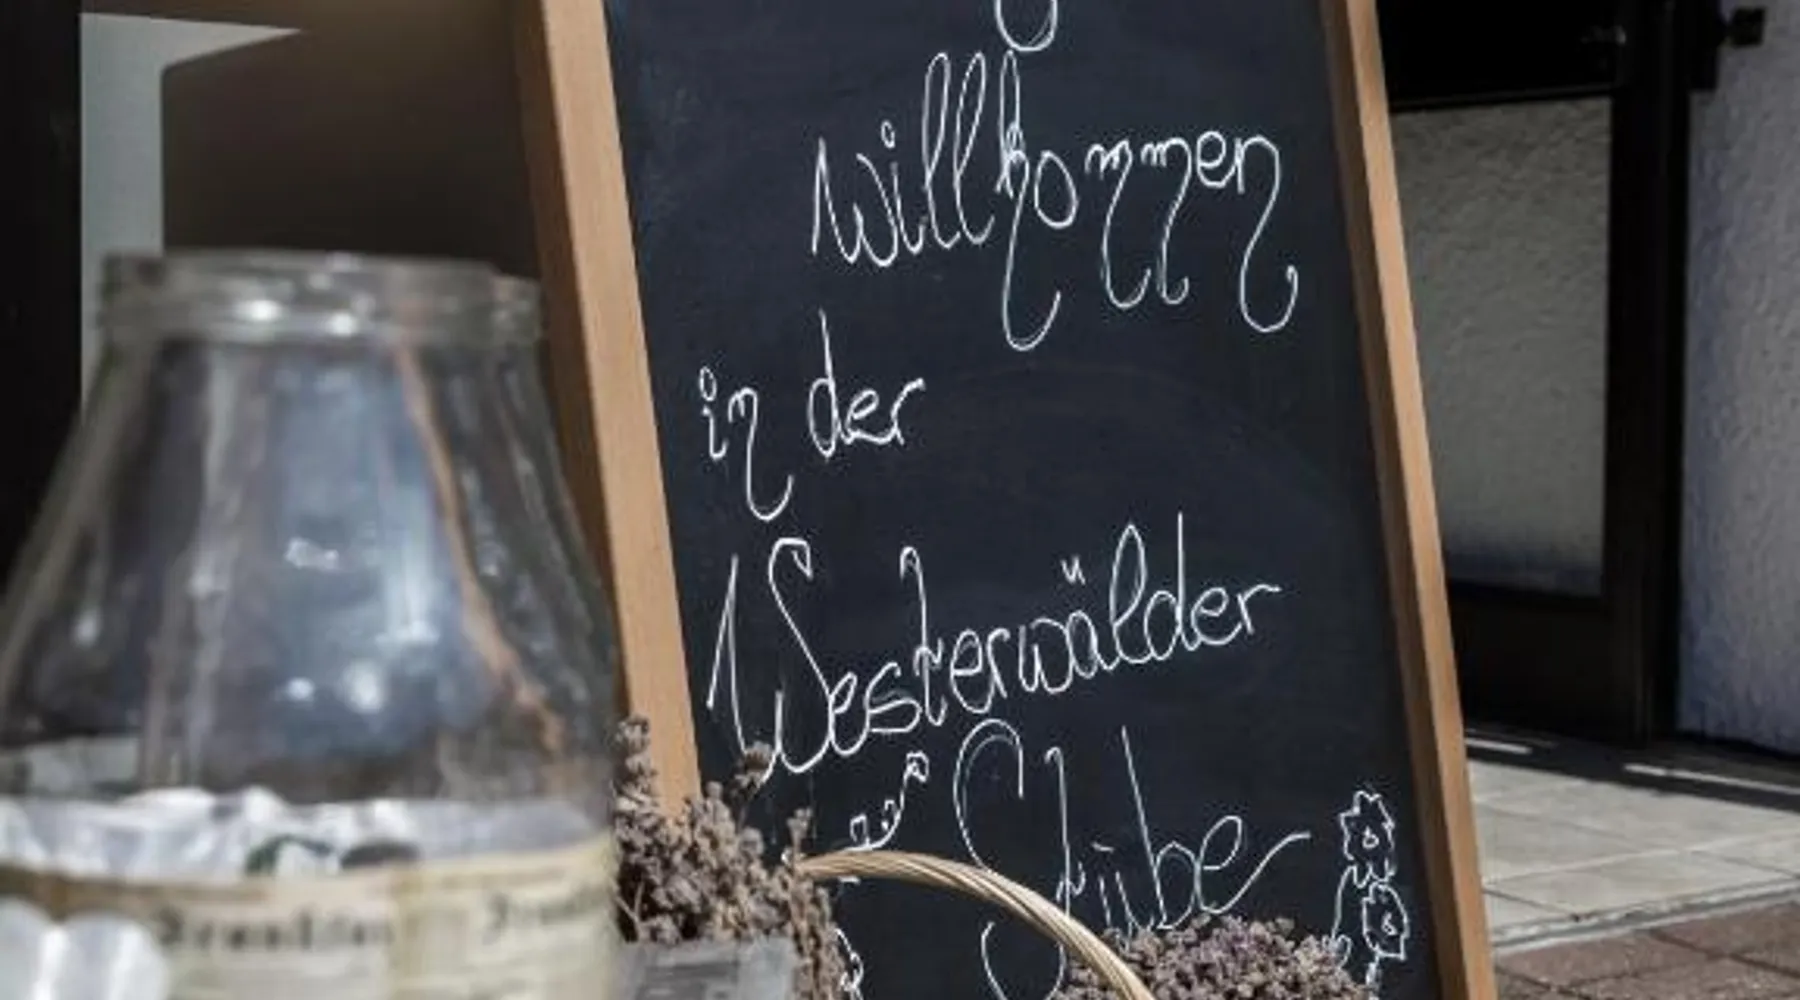 willkommen
in der
Westerwälder
Stübe